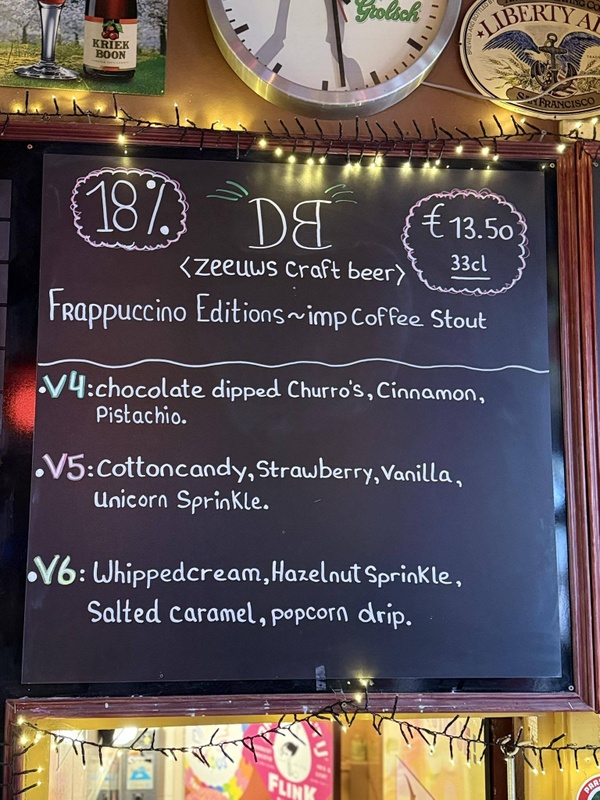 KRIEK
BOON
Grolsch
LIBERTY AL
SAN FRANCISCO
18%
DB
€ 13.50
33cl
<Zeeuws craft beer>
Frappuccino Editions~imp Coffee Stout
•V4:chocolate dipped Churro's, Cinnamon,
Pistachio.
•V5:Cottoncandy, Strawberry, Vanilla,
Unicorn Sprinkle.
•V6: Whippedcream, Hazelnut Sprinkle,
Salted caramel, popcorn drip.
FLINK